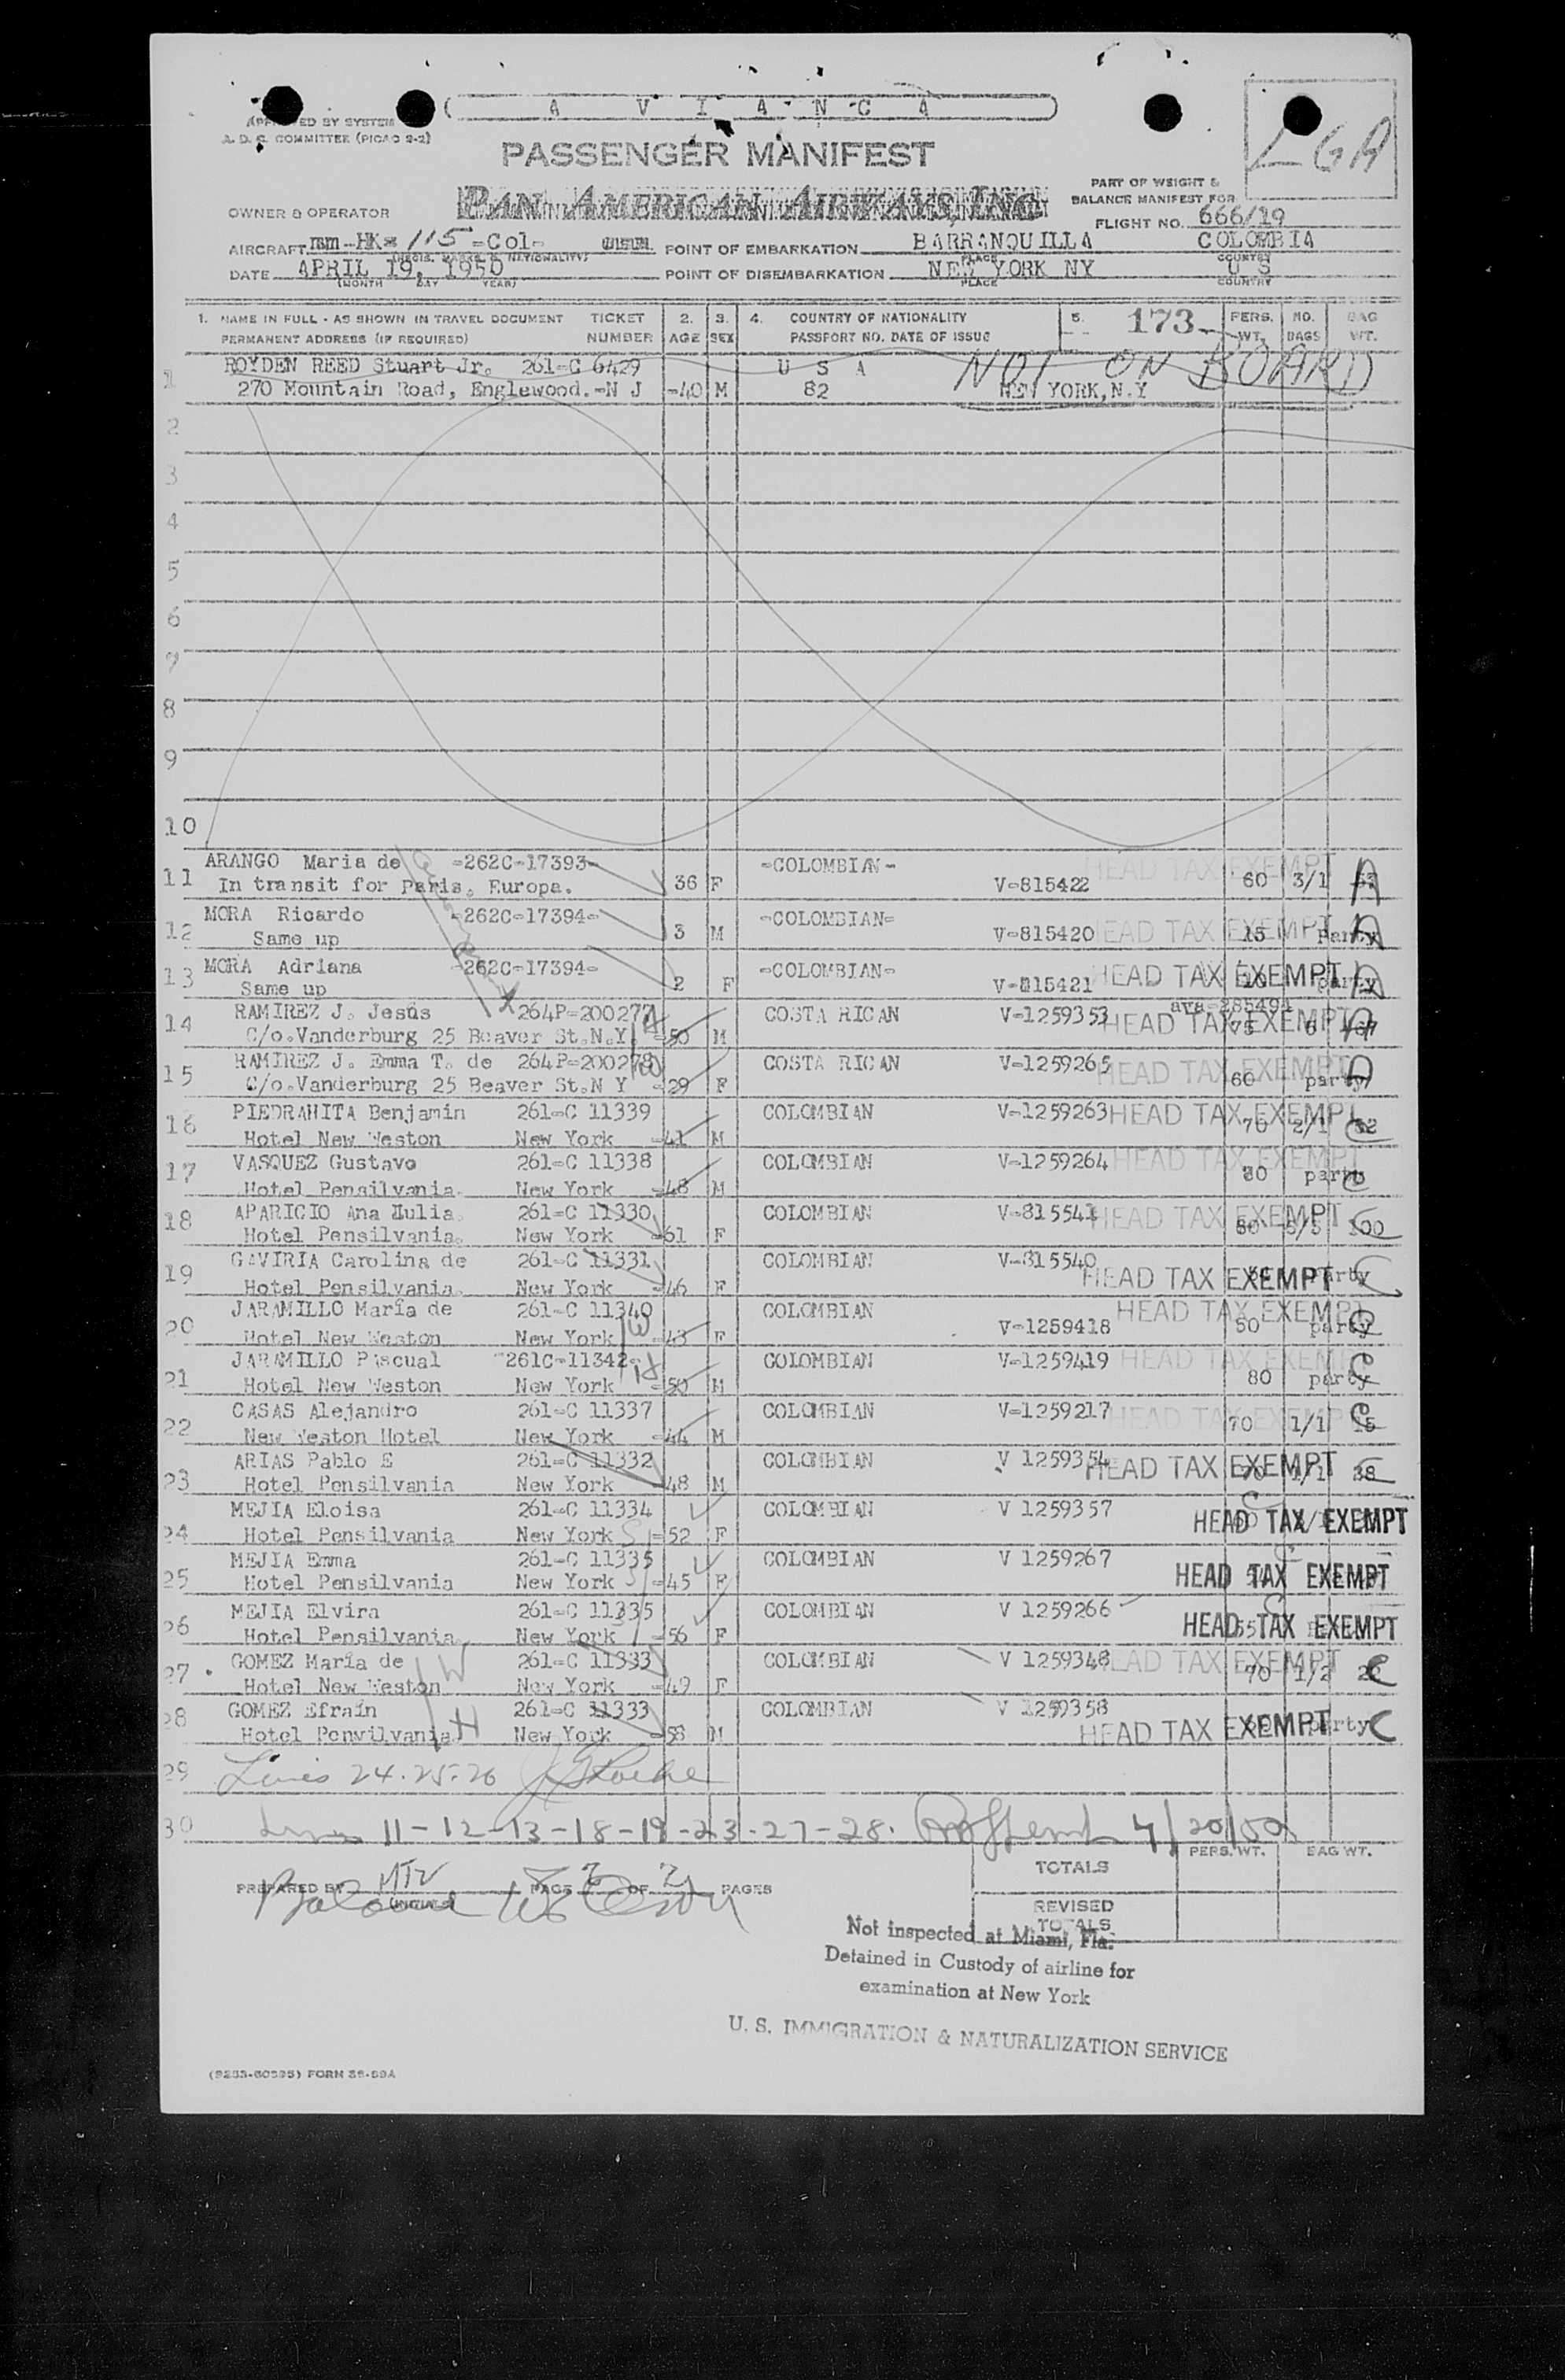 A V I A N C A
APPROVED BY SYSTEM
A. D. C. COMMITTEE (PICAO 2-2)
LGA
PASSENGER MANIFEST
PAN AMERICAN AIRWAYS, INC
PART OF WEIGHT &
BALANCE MANIFEST FOR
OWNER & OPERATOR
FLIGHT NO. 666/19
AIRCRAFT HK= 115 =Col- POINT OF EMBARKATION BARRANQUILLA COLOMBIA
(REGIS. MARKS & NATIONALITY) PLACE COUNTRY
DATE APRIL 19, 1950 POINT OF DISEMBARKATION NEW YORK NY U S
(MONTH DAY YEAR) PLACE COUNTRY
1. NAME IN FULL - AS SHOWN IN TRAVEL DOCUMENT TICKET 2. 3. 4. COUNTRY OF NATIONALITY 5. 173 PERS. NO. BAG
PERMANENT ADDRESS (IF REQUIRED) NUMBER AGE SEX PASSPORT NO. DATE OF ISSUE WT. BAGS WT.
ROYDEN REED Stuart Jr. 261=C 6429 U S A NOT ON BOARD
1 270 Mountain Road, Englewood.=N J -40 M 82 NEW YORK,N.Y
2
3
4
5
6
7
8
9
10
ARANGO Maria de =262C=17393= =COLOMBIAN= HEAD TAX EXEMPT
11 In transit for Paris. Europa. 36 F V=815422 60 3/1 A
MORA Ricardo =262C=17394= =COLOMBIAN=
12 Same up 3 M V=815420 HEAD TAX EXEMPT 15 Party A
13 MORA Adriana =262C=17394= =COLOMBIAN= HEAD TAX EXEMPT
Same up 2 F V=815421 party A
RAMIREZ J. Jesûs 264P=200277 COSTA RICAN V=1259353 HEAD TAX EXEMPT
14 C/o.Vanderburg 25 Beaver St.N.Y. =50 M 75 6
RAMIREZ J. Emma T. de 264P=200278 COSTA RICAN V=1259265 HEAD TAX EXEMPT
15 C/o.Vanderburg 25 Beaver St.N Y =29 F 60 party
PIEDRAHITA Benjamin 261=C 11339 COLOMBIAN V=1259263 HEAD TAX EXEMPT
16 Hotel New Weston New York =41 M 70 2/1
17 VASQUEZ Gustavo 261=C 11338 COLOMBIAN V=1259264 HEAD TAX EXEMPT
Hotel Pensilvania. New York =48 M 80 party
18 APARICIO Ana Hulia. 261=C 11330 COLOMBIAN V=815541 HEAD TAX EXEMPT
Hotel Pensilvania. New York =61 F 80 5/5 100
GAVIRIA Carolina de 261=C 11331 COLOMBIAN V=815540
19 Hotel Pensilvania. New York =46 F HEAD TAX EXEMPT party C
JARAMILLO María de 261=C 11340 COLOMBIAN HEAD TAX EXEMPT
20 Hotel New Weston New York W =43 F V=1259418 50 party
JARAMILLO Pascual 261C=11342= COLOMBIAN V=1259419 HEAD TAX EXEMPT
21 Hotel New Weston New York H =50 M 80 party C
CASAS Alejandro 261=C 11337 COLOMBIAN V=1259217 HEAD TAX EXEMPT
22 New Weston Hotel New York =44 M 70 1/1 15 C
ARIAS Pablo E 261=C 11332 COLOMBIAN V 1259354 HEAD TAX EXEMPT
23 Hotel Pensilvania New York =48 M 70 1/1 38
MEJIA Eloisa 261=C 11334 COLOMBIAN V 1259357 HEAD TAX EXEMPT
24 Hotel Pensilvania New York S =52 F
MEJIA Emma 261=C 11335 COLOMBIAN V 1259267 HEAD TAX EXEMPT
25 Hotel Pensilvania New York S =45 F
MEJIA Elvira 261=C 11335 COLOMBIAN V 1259266 HEAD TAX EXEMPT
26 Hotel Pensilvania. New York =56 F 55
27 GOMEZ María de W 261=C 11333 COLOMBIAN V 1259348 HEAD TAX EXEMPT
Hotel New Weston New York =49 F 70 1/2 C
28 GOMEZ Efraín 261=C 11333 COLOMBIAN V 1259358
Hotel Penvilvania H New York =58 M HEAD TAX EXEMPT party C
29 Lines 24.25.26
30 Lines 11-12-13-18-19-23-27-28. 4/20/50
TOTALS PERS. WT. BAG WT.
PREPARED BY MTV PAGE 2 OF 2 PAGES
(INITIALS)
REVISED
TOTALS
Not inspected at Miami, Fla.
Detained in Custody of airline for
examination at New York
U. S. IMMIGRATION & NATURALIZATION SERVICE
(9283-60595) FORM 36-59A